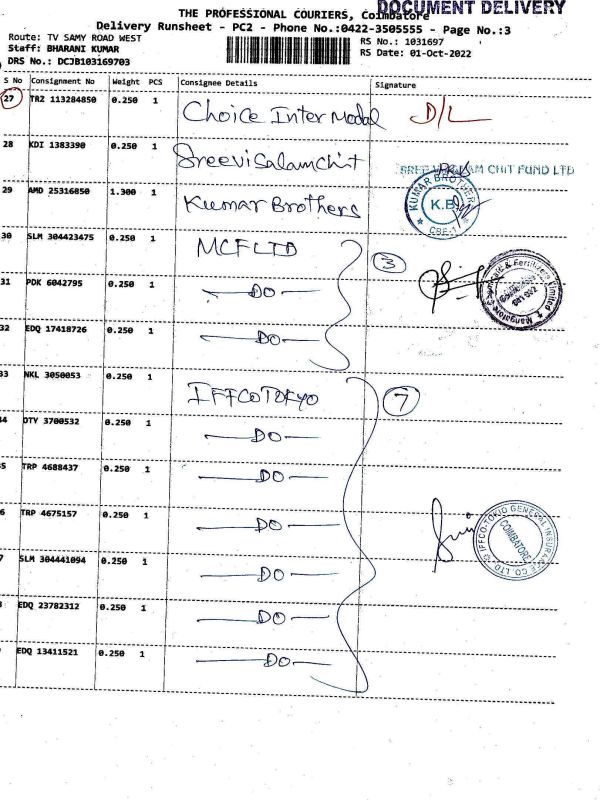 DOCUMENT DELIVERY
THE PROFESSIONAL COURIERS, Coimbatore
Delivery Runsheet - PC2 - Phone No.:0422-3505555 - Page No.:3
Route: TV SAMY ROAD WEST
Staff: BHARANI KUMAR
DRS No.: DCJB103169703
RS No.: 1031697
RS Date: 01-Oct-2022
S No Consignment No Weight PCS Consignee Details Signature
27 TRZ 113284850 0.250 1 Choice Inter Modal D/L
28 KDI 1383390 0.250 1 Sreevisalamchit SREE VISALAM CHIT FUND LTD
29 AMD 25316850 1.300 1 Kumar Brothers KUMAR BROTHERS K.B CBE-1
30 SLM 304423475 0.250 1 MCFLTD 3 Mangalore Chemicals & Fertilizers Limited
31 PDK 6042795 0.250 1 —DO—
32 EDQ 17418726 0.250 1 —DO—
33 NKL 3050053 0.250 1 IFFCOTOKYO 7
4 OTY 3700532 0.250 1 —DO—
5 TRP 4688437 0.250 1 —DO—
6 TRP 4675157 0.250 1 —DO— IFFCO-TOKIO GENERAL INSURANCE CO. LTD. COIMBATORE
7 SLM 304441094 0.250 1 —DO—
EDQ 23782312 0.250 1 —DO—
EDQ 13411521 0.250 1 —DO—